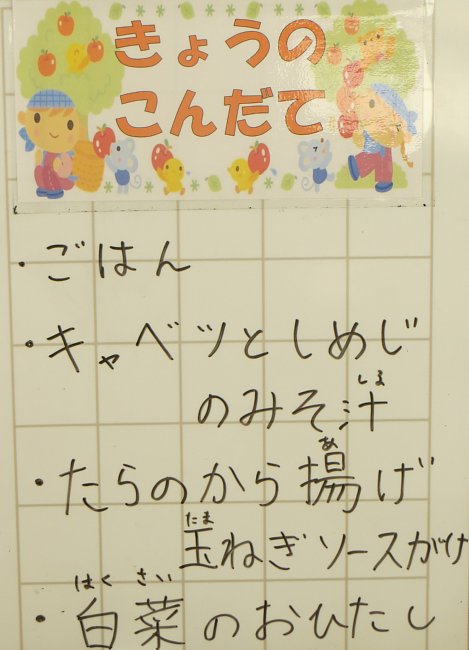 きょうの
こんだて
・ごはん
・キャベツとしめじ
のみそ汁
しる
・たらのから揚げ
あ
玉ねぎソースがけ
たま
・白菜のおひたし
はくさい